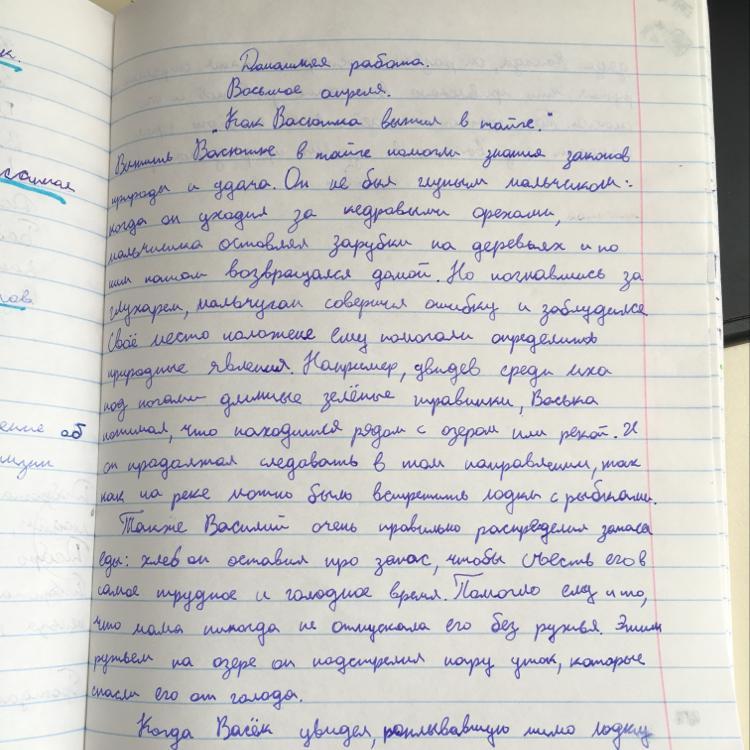 к.
Домашняя работа.
Восьмое апреля.
"Как Васютка выжил в тайге."
Выжить Васютке в тайге помогли знания законов
природы и удача. Он не был глупым мальчиком:
когда он уходил за кедравыми орехами,
мальчишка оставлял зарубки на деревьях и по
ним потом возвращался домой. Но погнавшись за
глухарем, мальчуган совершил ошибку и заблудился
Своё место положене ему помогали определить
природные явления. Например, увидев среди мха
под ногами длинные зелёные травинки, Васька
понимал, что находится рядом с озером или рекой. И
он продолжал следовать в том направлении, так
как на реке можно было встретить лодки с рыбками.
Также Василий очень правильно распределил запаса
еды: хлеб он оставил про запас, чтобы съесть его в
самое трудное и голодное время. Помогло ему и то,
что мама никогда не отпускала его без ружья. Этим
ружьем на озере он подстрелил пару уток, которые
спасли его от голода.
Когда Васёк увидел, роплывавшую мимо лодку
ов
ение об
изни